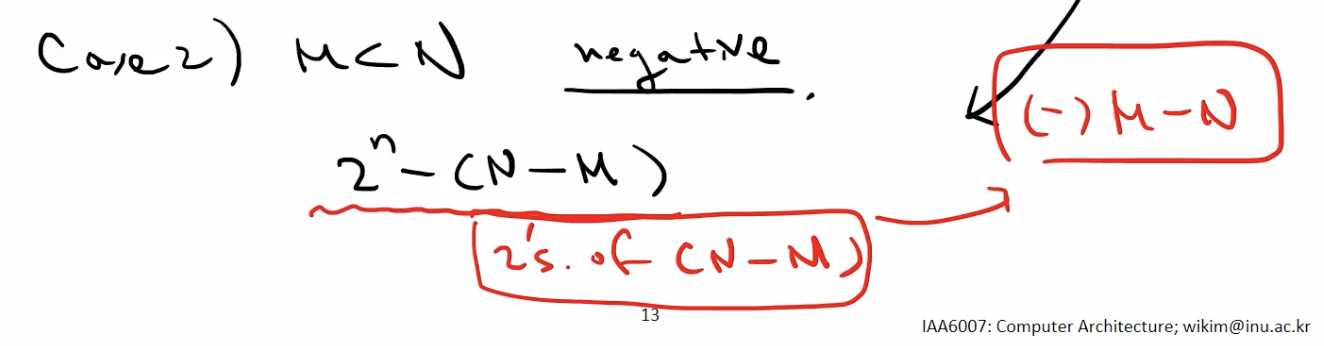 Case2) M<N negative.
(-) M-N
2ⁿ-(N-M)
2's. of (N-M)
13
IAA6007: Computer Architecture; wikim@inu.ac.kr